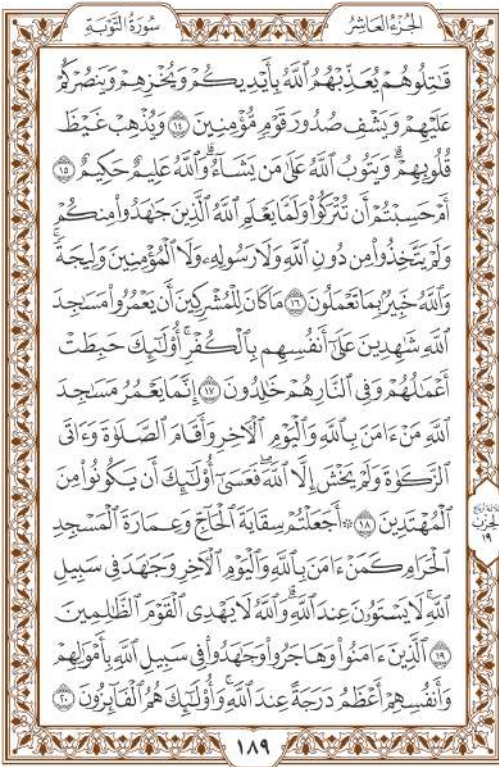 الجُزْءُ العَاشِرُ
سُورَةُ التَّوْبَةِ
قَٰتِلُوهُمْ يُعَذِّبْهُمُ ٱللَّهُ بِأَيْدِيكُمْ وَيُخْزِهِمْ وَيَنصُرْكُمْ
عَلَيْهِمْ وَيَشْفِ صُدُورَ قَوْمٍ مُّؤْمِنِينَ ١٤ وَيُذْهِبْ غَيْظَ
قُلُوبِهِمْ ۗ وَيَتُوبُ ٱللَّهُ عَلَىٰ مَن يَشَآءُ ۗ وَٱللَّهُ عَلِيمٌ حَكِيمٌ ١٥
أَمْ حَسِبْتُمْ أَن تُتْرَكُوا۟ وَلَمَّا يَعْلَمِ ٱللَّهُ ٱلَّذِينَ جَٰهَدُوا۟ مِنكُمْ
وَلَمْ يَتَّخِذُوا۟ مِن دُونِ ٱللَّهِ وَلَا رَسُولِهِۦ وَلَا ٱلْمُؤْمِنِينَ وَلِيجَةً ۚ
وَٱللَّهُ خَبِيرٌۢ بِمَا تَعْمَلُونَ ١٦ مَا كَانَ لِلْمُشْرِكِينَ أَن يَعْمُرُوا۟ مَسَٰجِدَ
ٱللَّهِ شَٰهِدِينَ عَلَىٰٓ أَنفُسِهِم بِٱلْكُفْرِ ۚ أُو۟لَٰٓئِكَ حَبِطَتْ
أَعْمَٰلُهُمْ وَفِى ٱلنَّارِ هُمْ خَٰلِدُونَ ١٧ إِنَّمَا يَعْمُرُ مَسَٰجِدَ
ٱللَّهِ مَنْ ءَامَنَ بِٱللَّهِ وَٱلْيَوْمِ ٱلْءَاخِرِ وَأَقَامَ ٱلصَّلَوٰةَ وَءَاتَى
ٱلزَّكَوٰةَ وَلَمْ يَخْشَ إِلَّا ٱللَّهَ ۖ فَعَسَىٰٓ أُو۟لَٰٓئِكَ أَن يَكُونُوا۟ مِنَ
ٱلْمُهْتَدِينَ ١٨ ۞ أَجَعَلْتُمْ سِقَايَةَ ٱلْحَآجِّ وَعِمَارَةَ ٱلْمَسْجِدِ
ٱلْحَرَامِ كَمَنْ ءَامَنَ بِٱللَّهِ وَٱلْيَوْمِ ٱلْءَاخِرِ وَجَٰهَدَ فِى سَبِيلِ
ٱللَّهِ ۚ لَا يَسْتَوُۥنَ عِندَ ٱللَّهِ ۗ وَٱللَّهُ لَا يَهْدِى ٱلْقَوْمَ ٱلظَّٰلِمِينَ
١٩ ٱلَّذِينَ ءَامَنُوا۟ وَهَاجَرُوا۟ وَجَٰهَدُوا۟ فِى سَبِيلِ ٱللَّهِ بِأَمْوَٰلِهِمْ
وَأَنفُسِهِمْ أَعْظَمُ دَرَجَةً عِندَ ٱللَّهِ ۚ وَأُو۟لَٰٓئِكَ هُمُ ٱلْفَآئِزُونَ ٢٠
الحِزْب
١٩
١٨٩